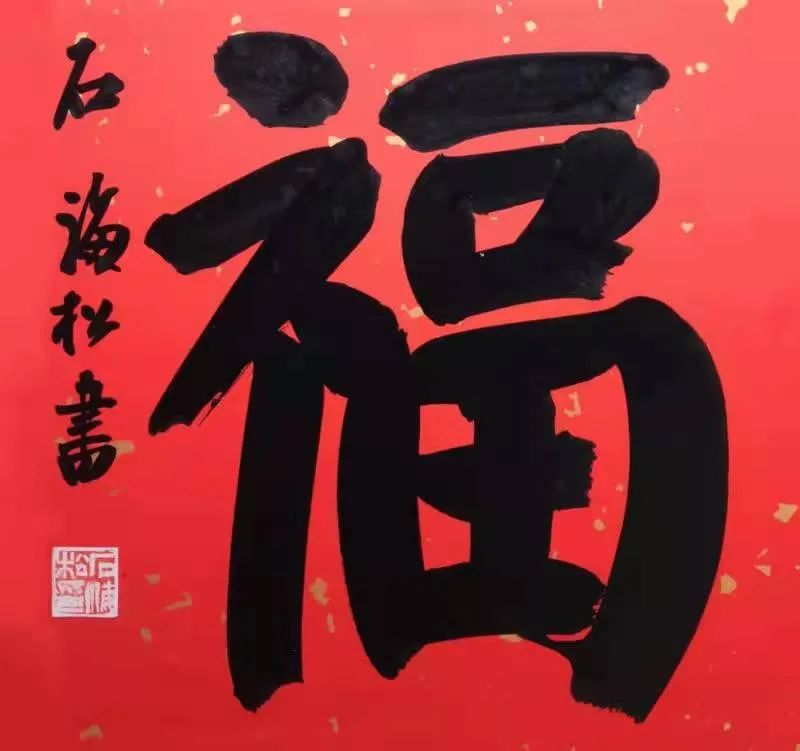 福
石海松書
石海松印